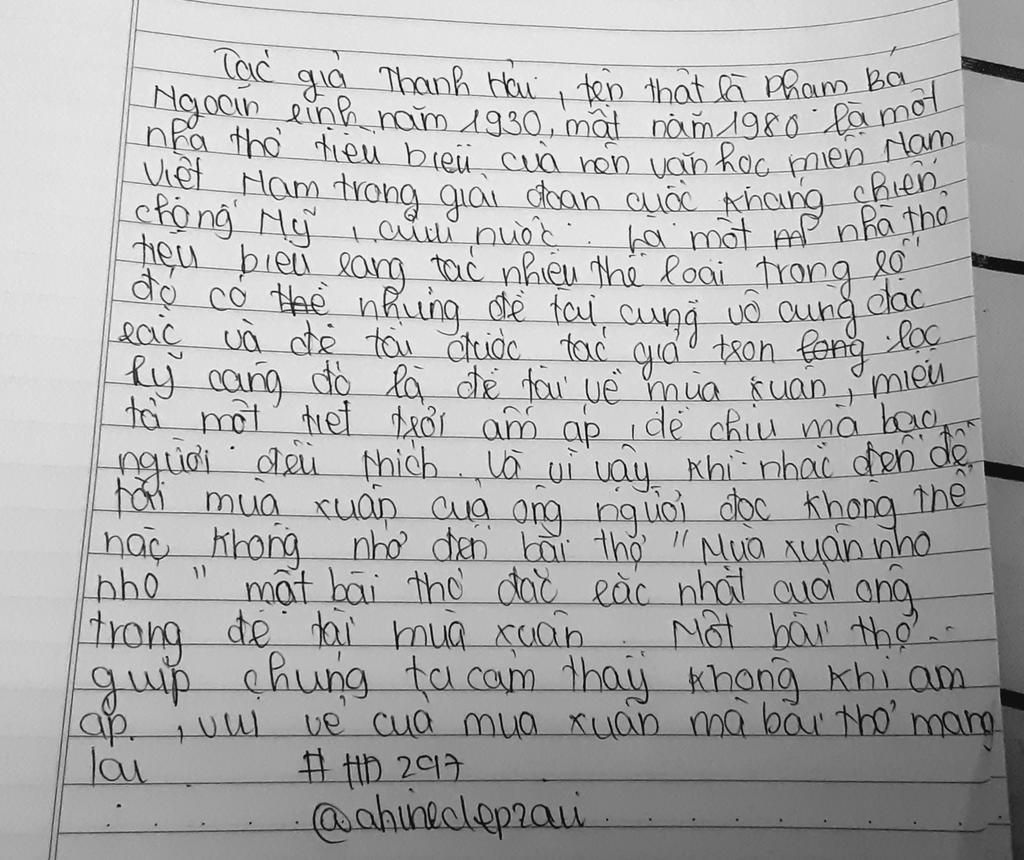 Tác giả Thanh Hải, tên thật là Phạm Bá
Ngoãn sinh năm 1930, mất năm 1980 là một
nhà thơ tiêu biểu của nền văn học miền Nam
Việt Nam trong giai đoạn cuộc kháng chiến
chống Mỹ, cứu nước. Là một nhà thơ
tiêu biểu sáng tác nhiều thể loại trong số
đó có thể những đề tài cũng vô cùng đặc
sắc và đề tài được tác giả tron long lọc
kỹ càng đó là đề tài về mùa xuân, miêu
tả một tiết trời ấm áp, dễ chịu mà bao
người đều thích. Và vì vậy khi nhắc đến đề
tài mùa xuân của ông người đọc không thể
nào không nhớ đến bài thơ "Mùa xuân nho
nhỏ" một bài thơ đặc sắc nhất của ông
trong đề tài mùa xuân. Một bài thơ..
guip chúng ta cảm thấy không khí ấm
áp, vui vẻ của mùa xuân mà bài thơ mang
lại #HD297
@ahineclepzaii